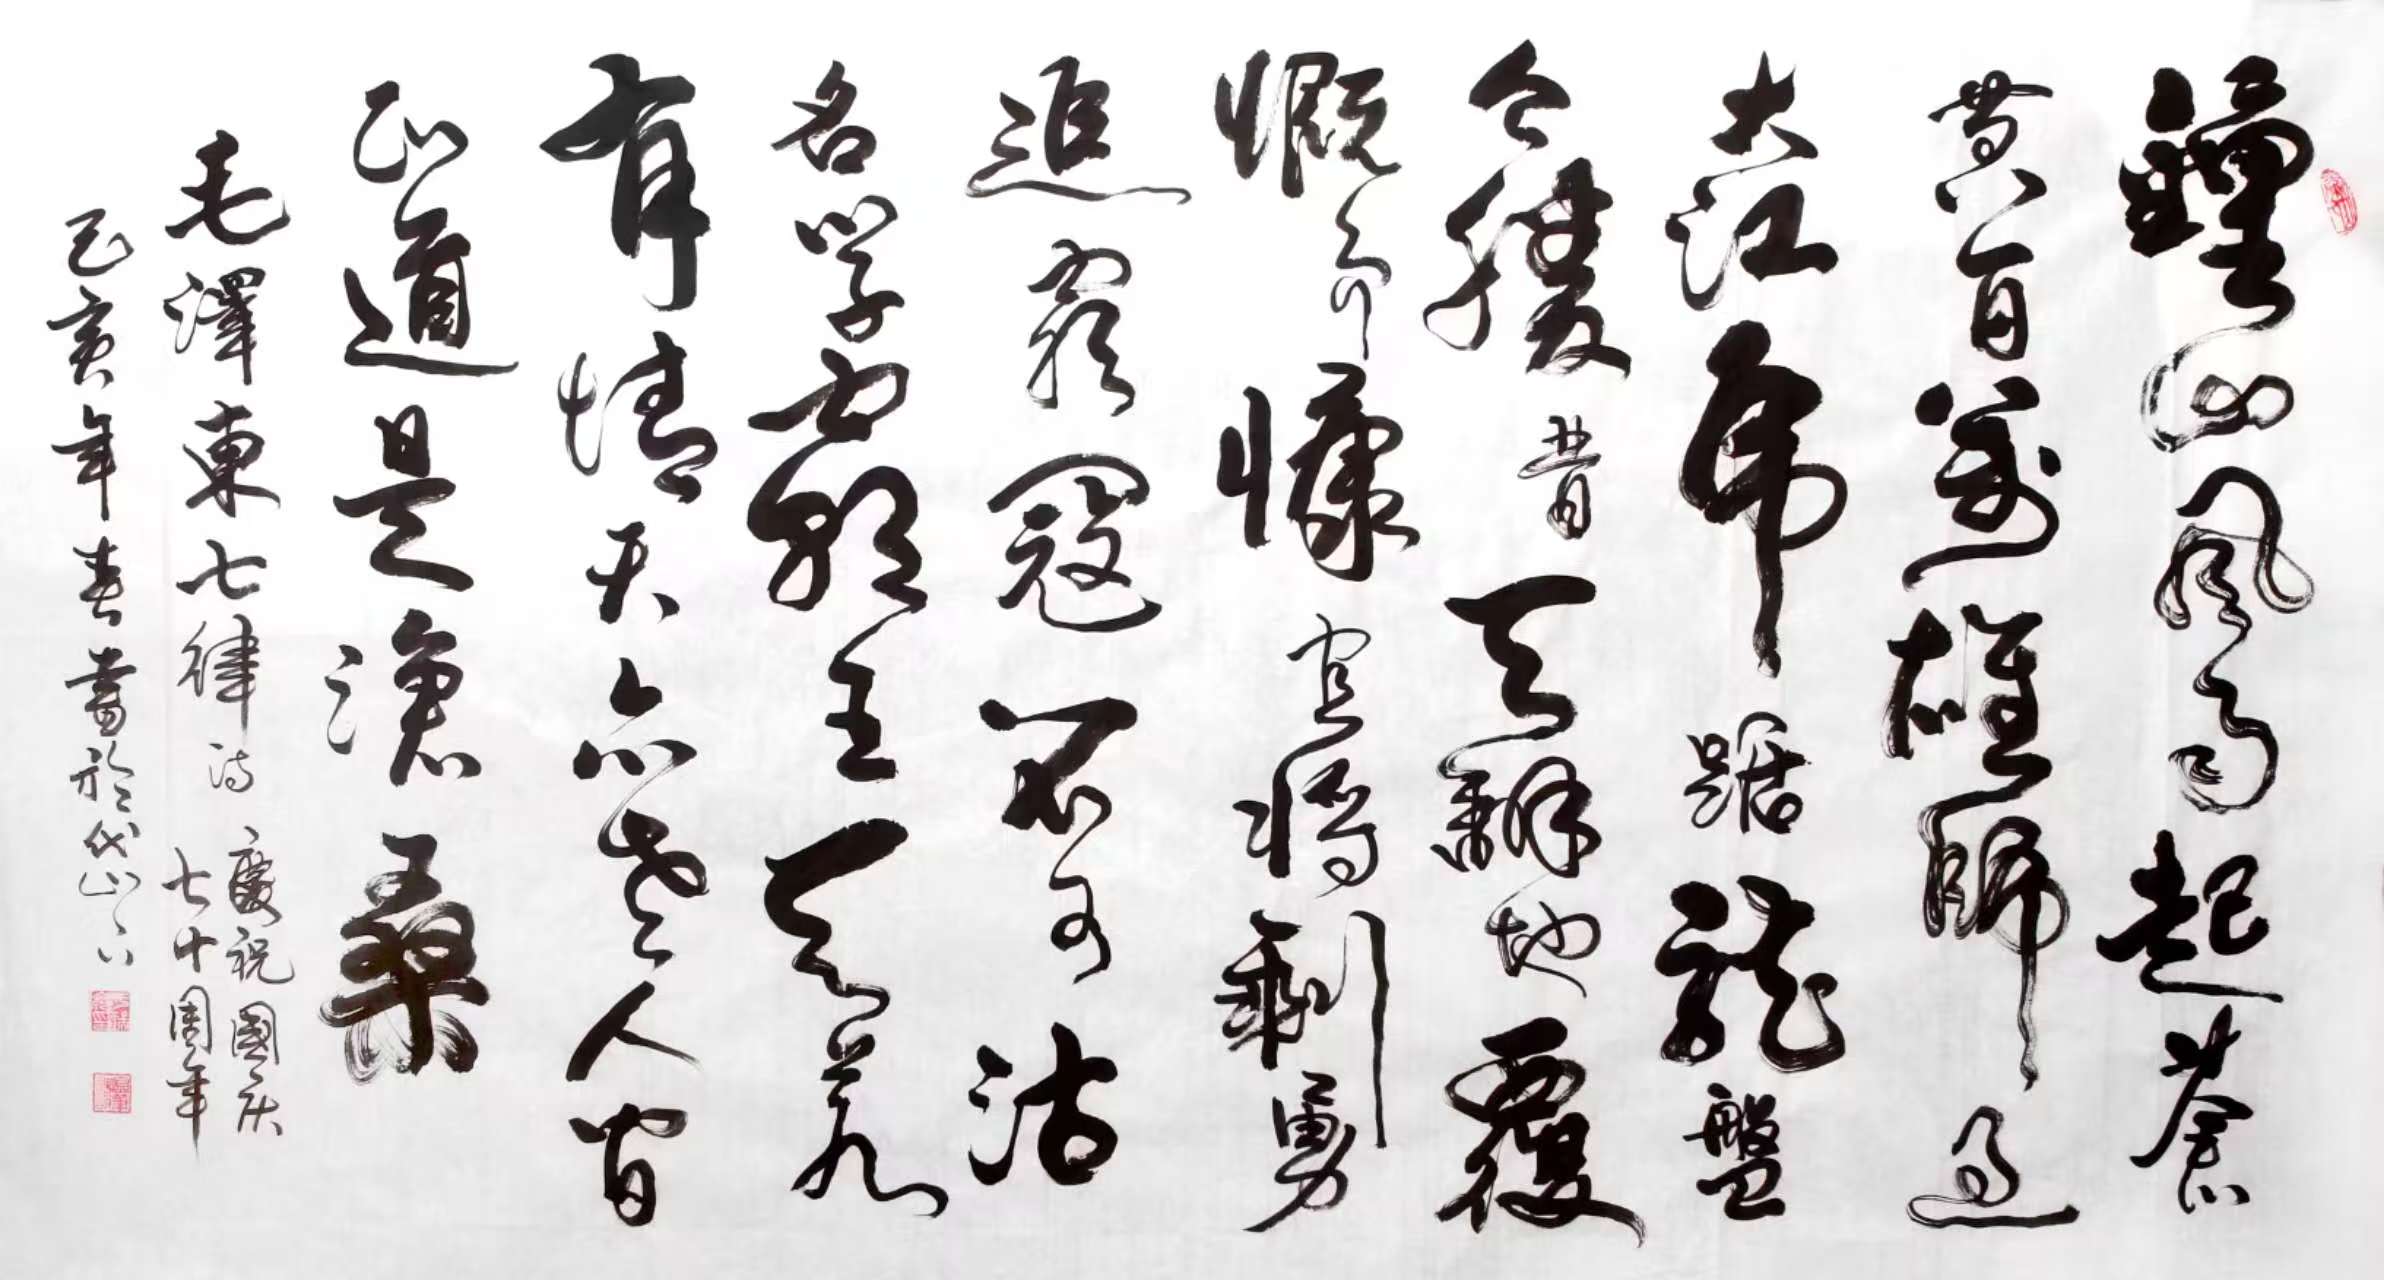 鐘山風雨起蒼
黃百萬雄師過
大江虎踞龍盤
今勝昔天翻地覆
慨而慷宜將剩勇
追窮寇不可沽
名學霸王天若
有情天亦老人間
正道是滄桑
毛澤東七律詩
慶祝國庆
七十周年
己亥年春書於岱下